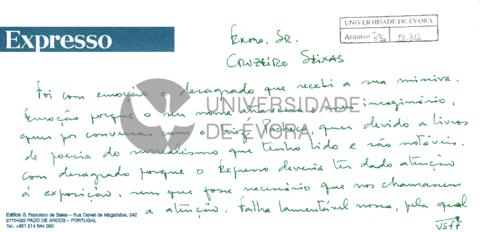 Expresso
UNIVERSIDADE DE ÉVORA
Arquivo
Exmo. Sr.
CRUZEIRO SEIXAS
Foi com emoção e desagrado que recebi a sua missiva.
Emoção porque o seu nome atravessa o meu imaginário,
quer por conversas com o Luiz Pacheco, quer devido a livros
de poesia do surrealismo que tenho lido e são notáveis.
Com desagrado porque o Expresso deveria ter dado atenção
à exposição, sem que fosse necessário que nos chamassem
a atenção. Falha lamentável nossa, pela qual
UNIVERSIDADE
DE ÉVORA
Edifício S. Francisco de Sales – Rua Calvet de Magalhães, 242
2770-022 PAÇO DE ARCOS – PORTUGAL
Tel. +351 214 544 000